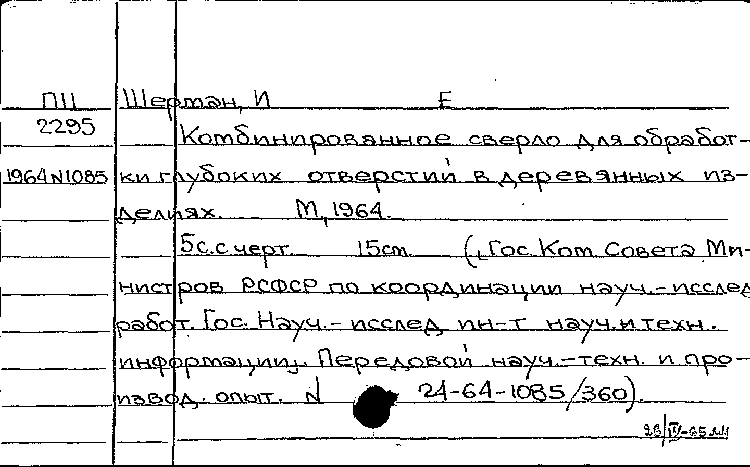 ПЦ Шерман, И Е
2295 Комбинированное сверло для обработ-
1964 N1085 ки глубоких отверстий в деревянных из-
делиях. М, 1964.
5с. с черт. 15см (Гос. Ком. Совета Ми-
нистров РСФСР по координации науч.-исслед
работ. Гос. Науч.-исслед ин-т науч. и техн.
информации. Передовой науч.-техн. и про-
извод. опыт. N 24-64-1085/360).